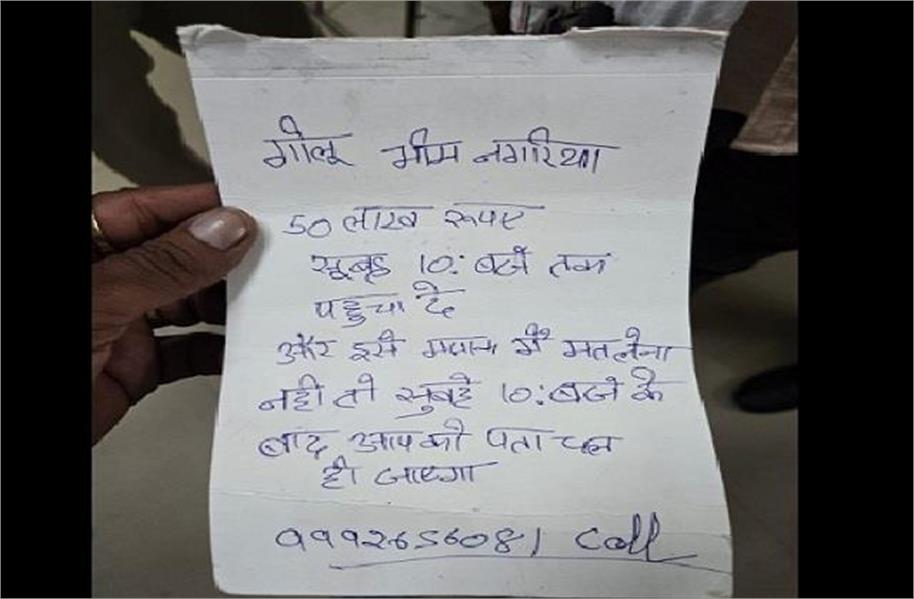 गोलू भीम नगरिया
50 लाख रूपए
सूबह 10: बजे तक
पहुचा दे
और इसे मजाक मैं मत लेना
नही तो सुबहे 10: बजे के
बाद आपको पता चल
ही जाएगा
9992656081 call